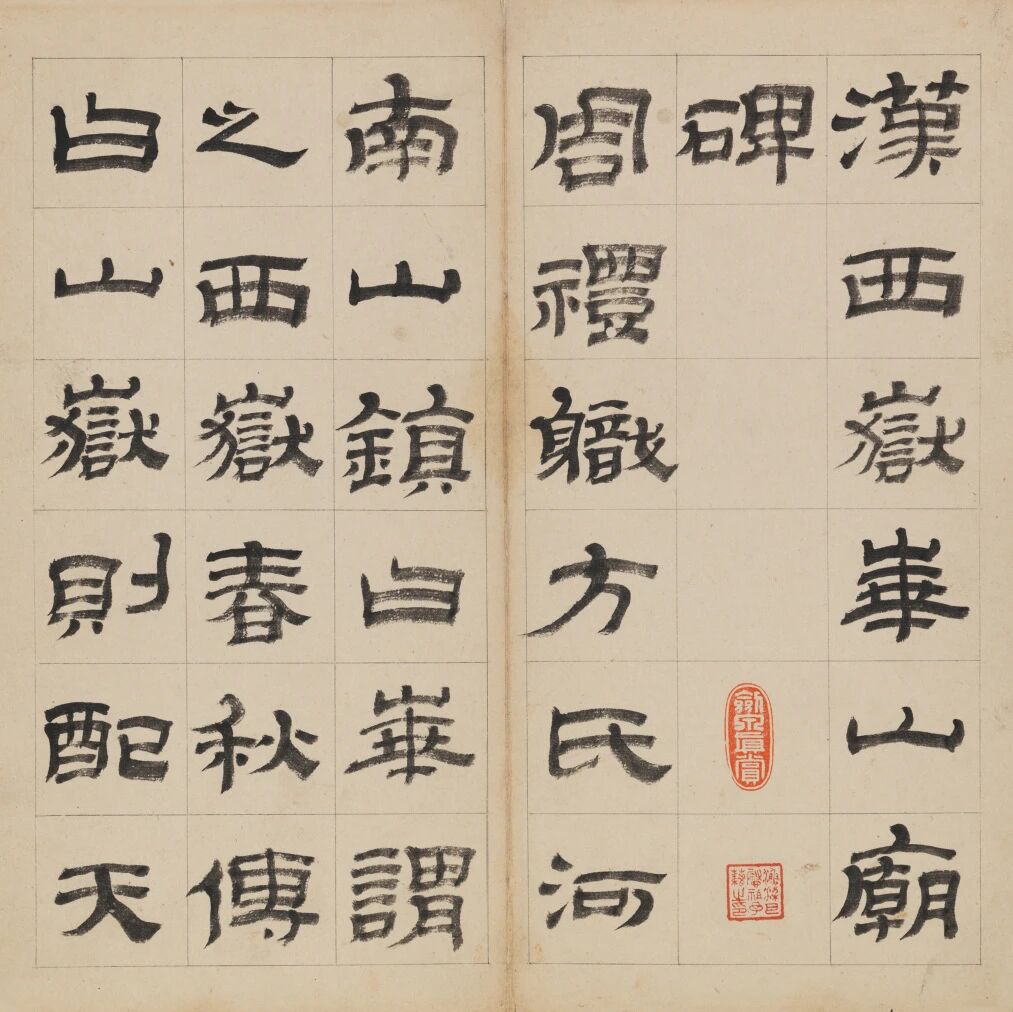 漢西嶽華山廟
碑
劍泉真賞
周禮職方氏河
南山鎮曰華謂
之西嶽春秋傳
曰山嶽則配天